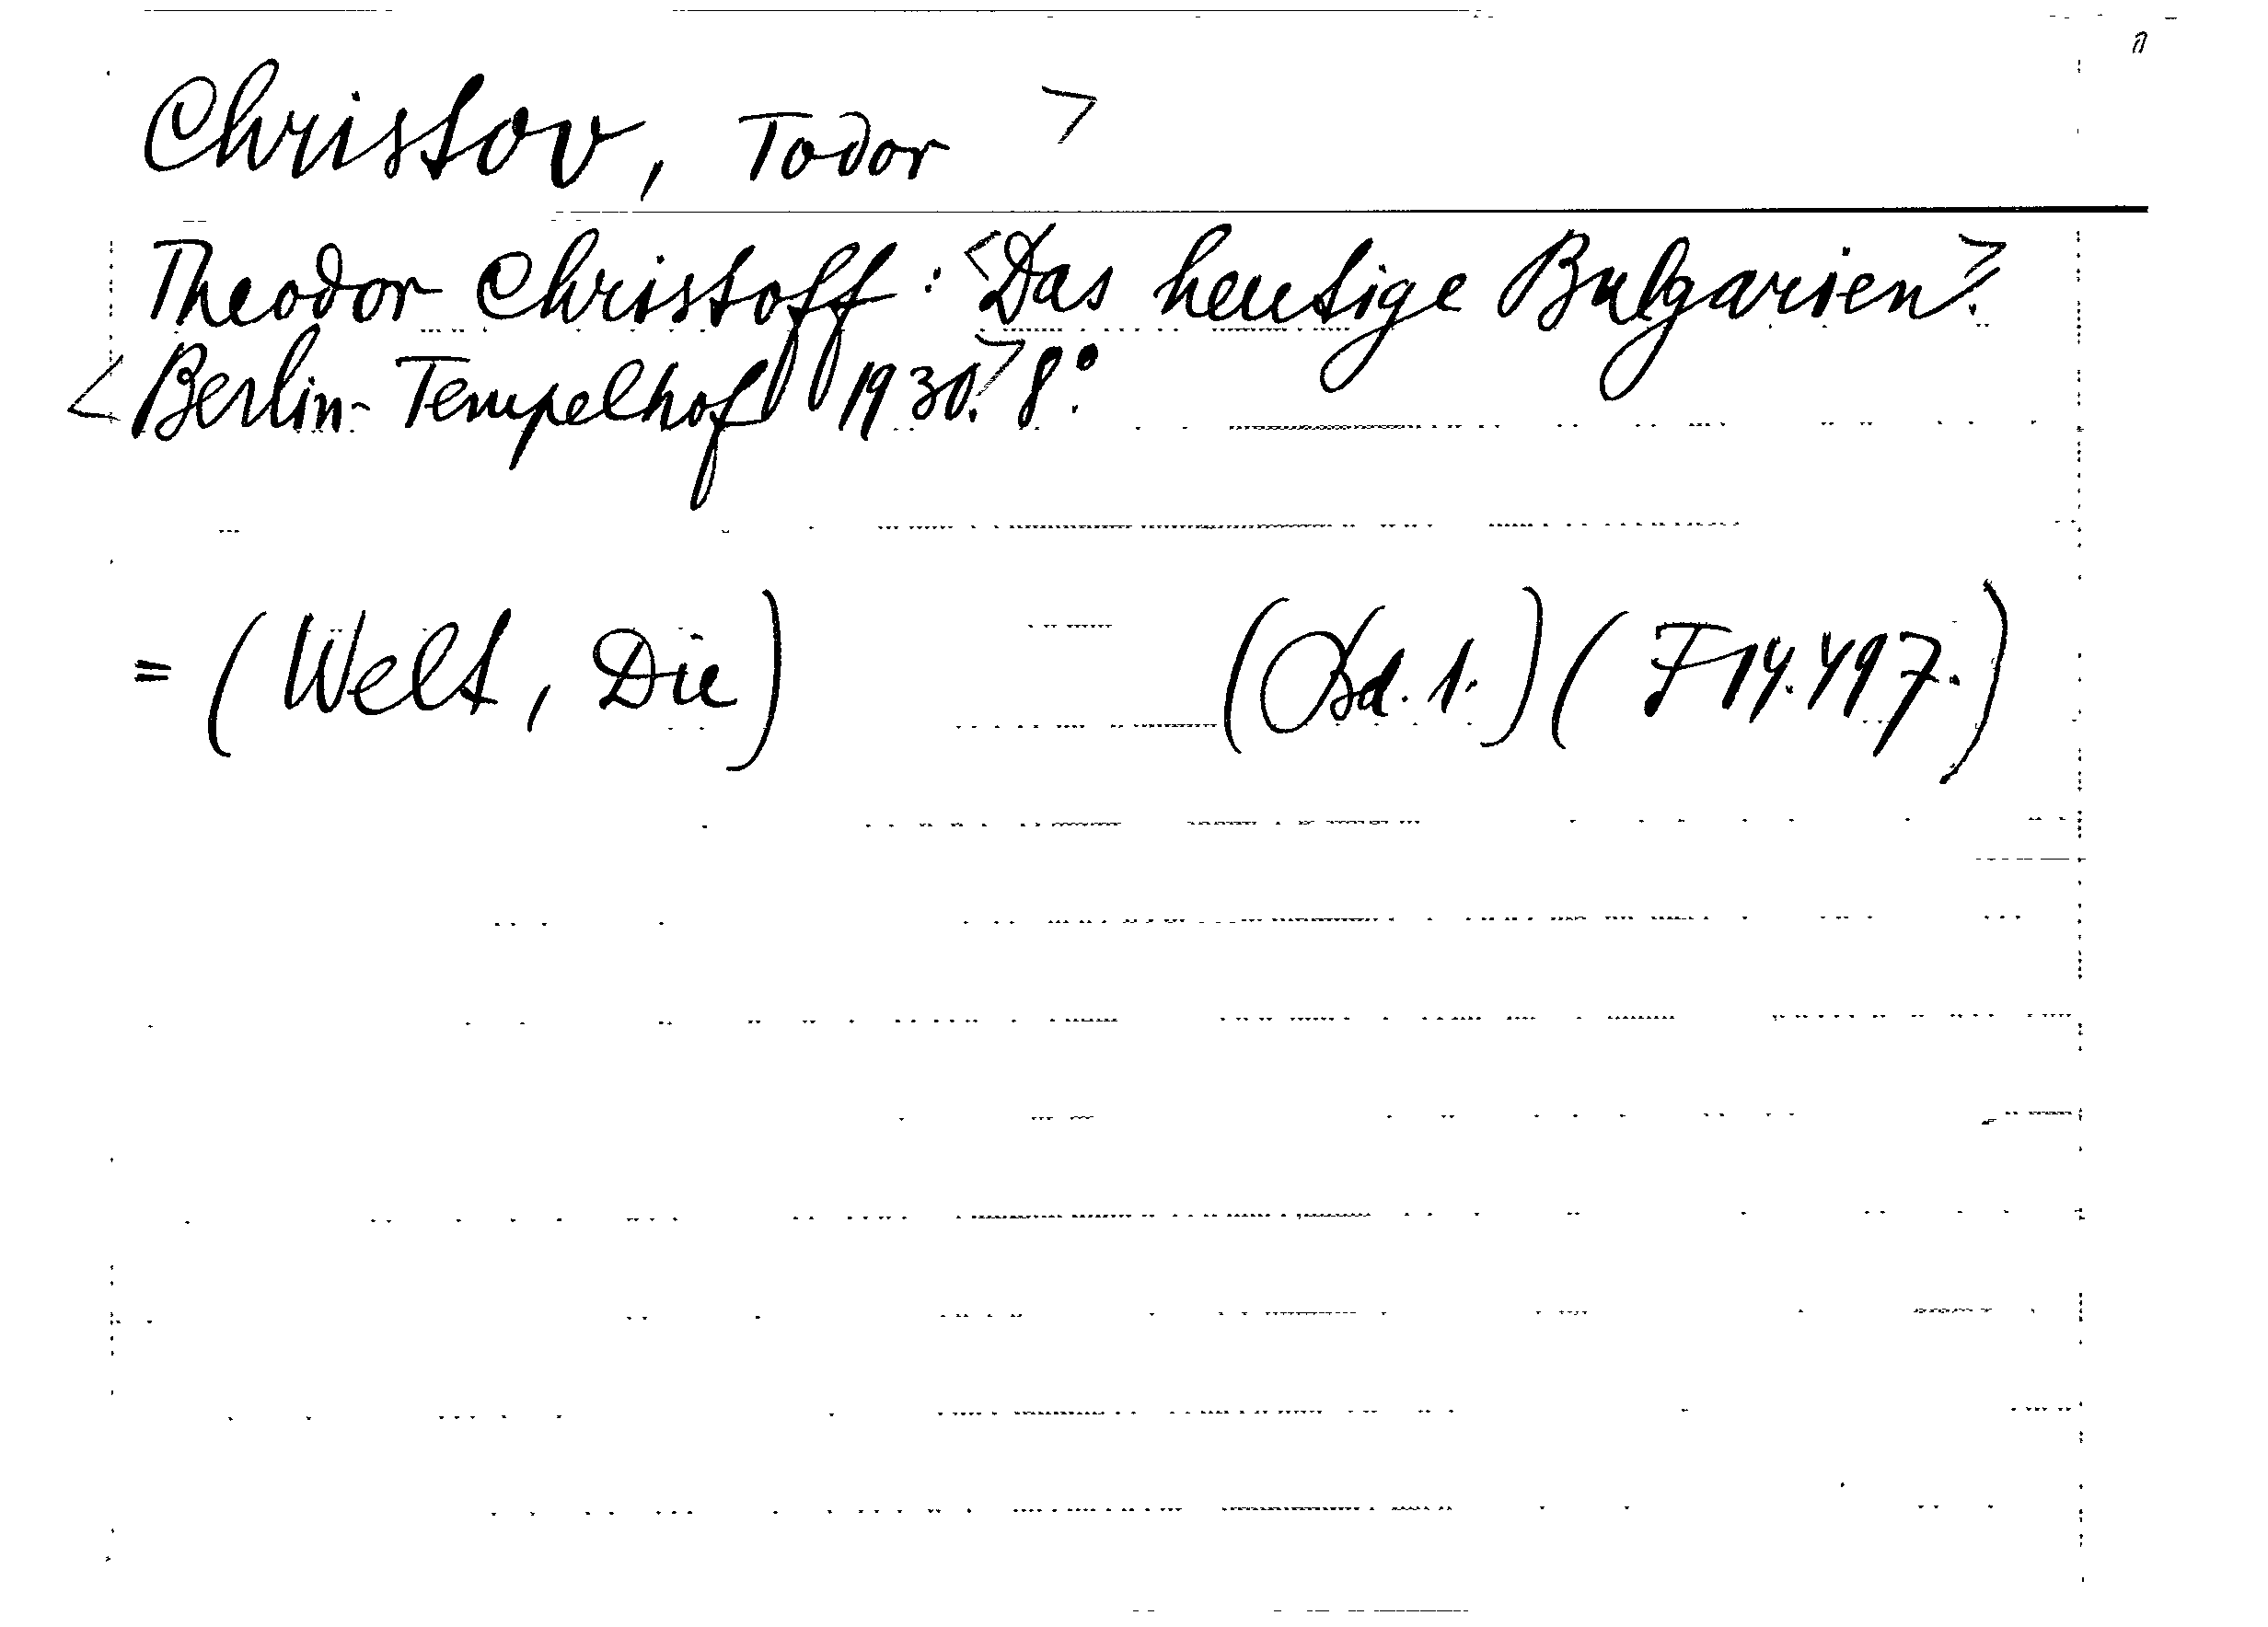 Christov, Todor >
Theodor Christoff: <Das heutige Bulgarien>.
<Berlin-Tempelhof 1930.> 8°.
= (Welt, Die) (Bd. 1.) (F 14.497.)